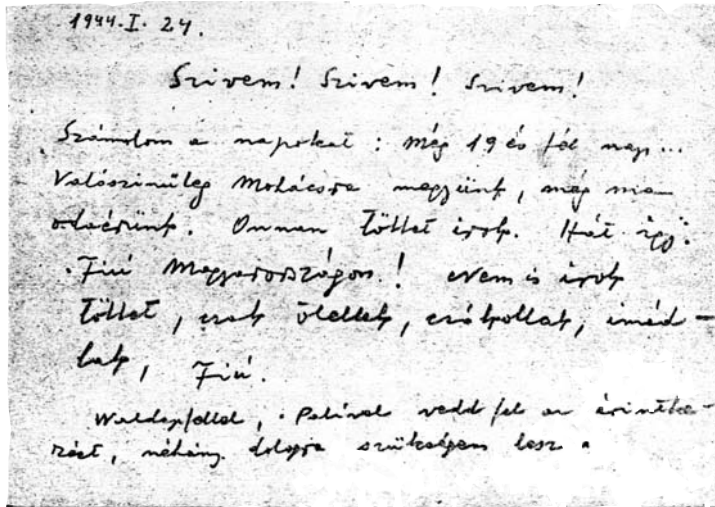 1944. I. 24.
Szivem! Szivem! Szivem!
Számolom a napokat: Még 19 és fél nap...
Valószinüleg Mohácsra megyünk, még ma
odaérünk. Onnan többet irok. Hát így:
Fiú Magyarországon! Nem is irok
többet, csak ölellek, csókollak, imád-
lak, Fiú.
Waldapfellel, Palival vedd fel az érintke-
zést, néhány dologra szükségem lesz.